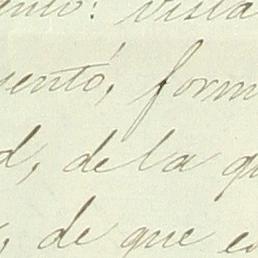 ento: vista
sentó, form
d, de la q
, de que e